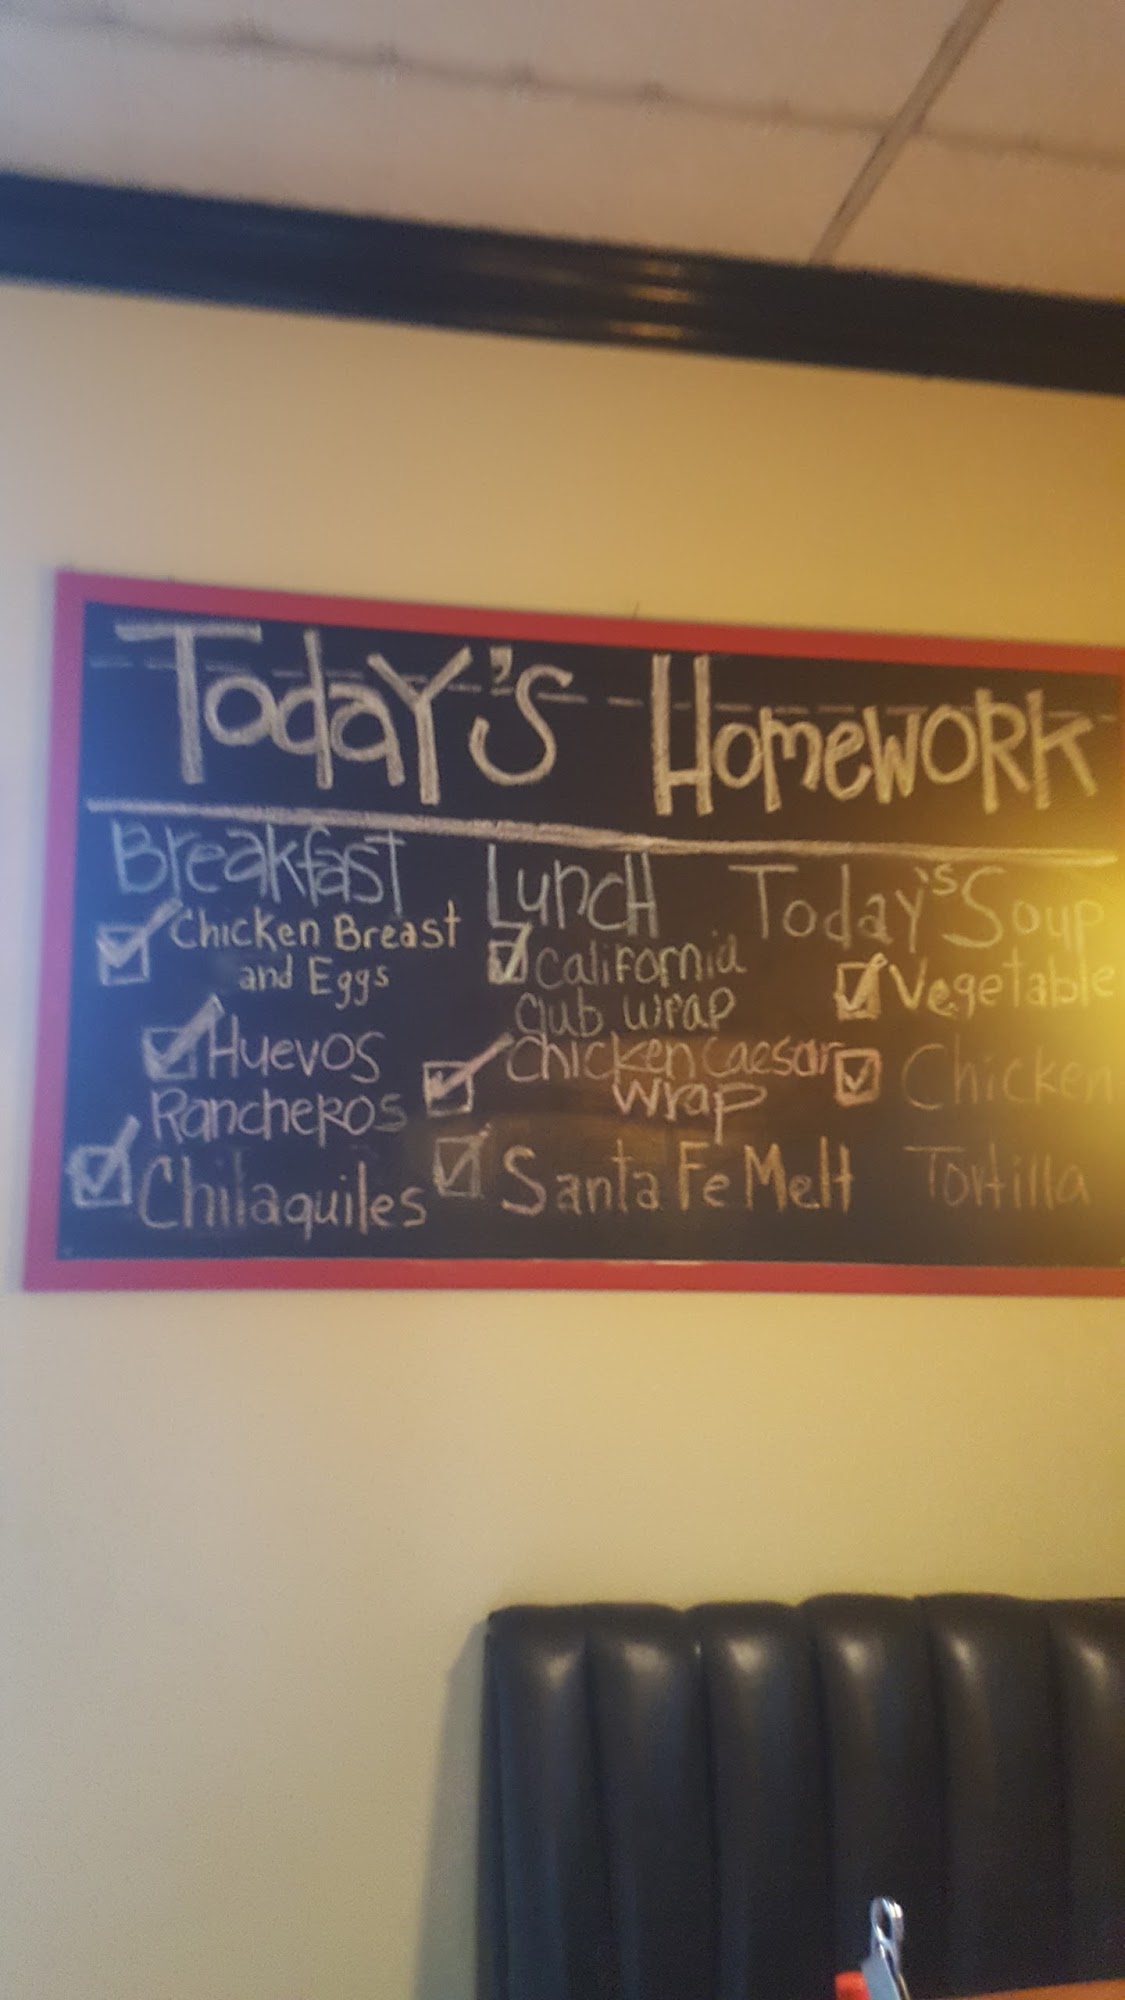 Today's Homework
Breakfast
Chicken Breast
and Eggs
Huevos
Rancheros
Chilaquiles
Lunch
California
Club wrap
Chicken Caesar
Wrap
Santa Fe Melt
Today's Soup
Vegetable
Chicken
Tortilla